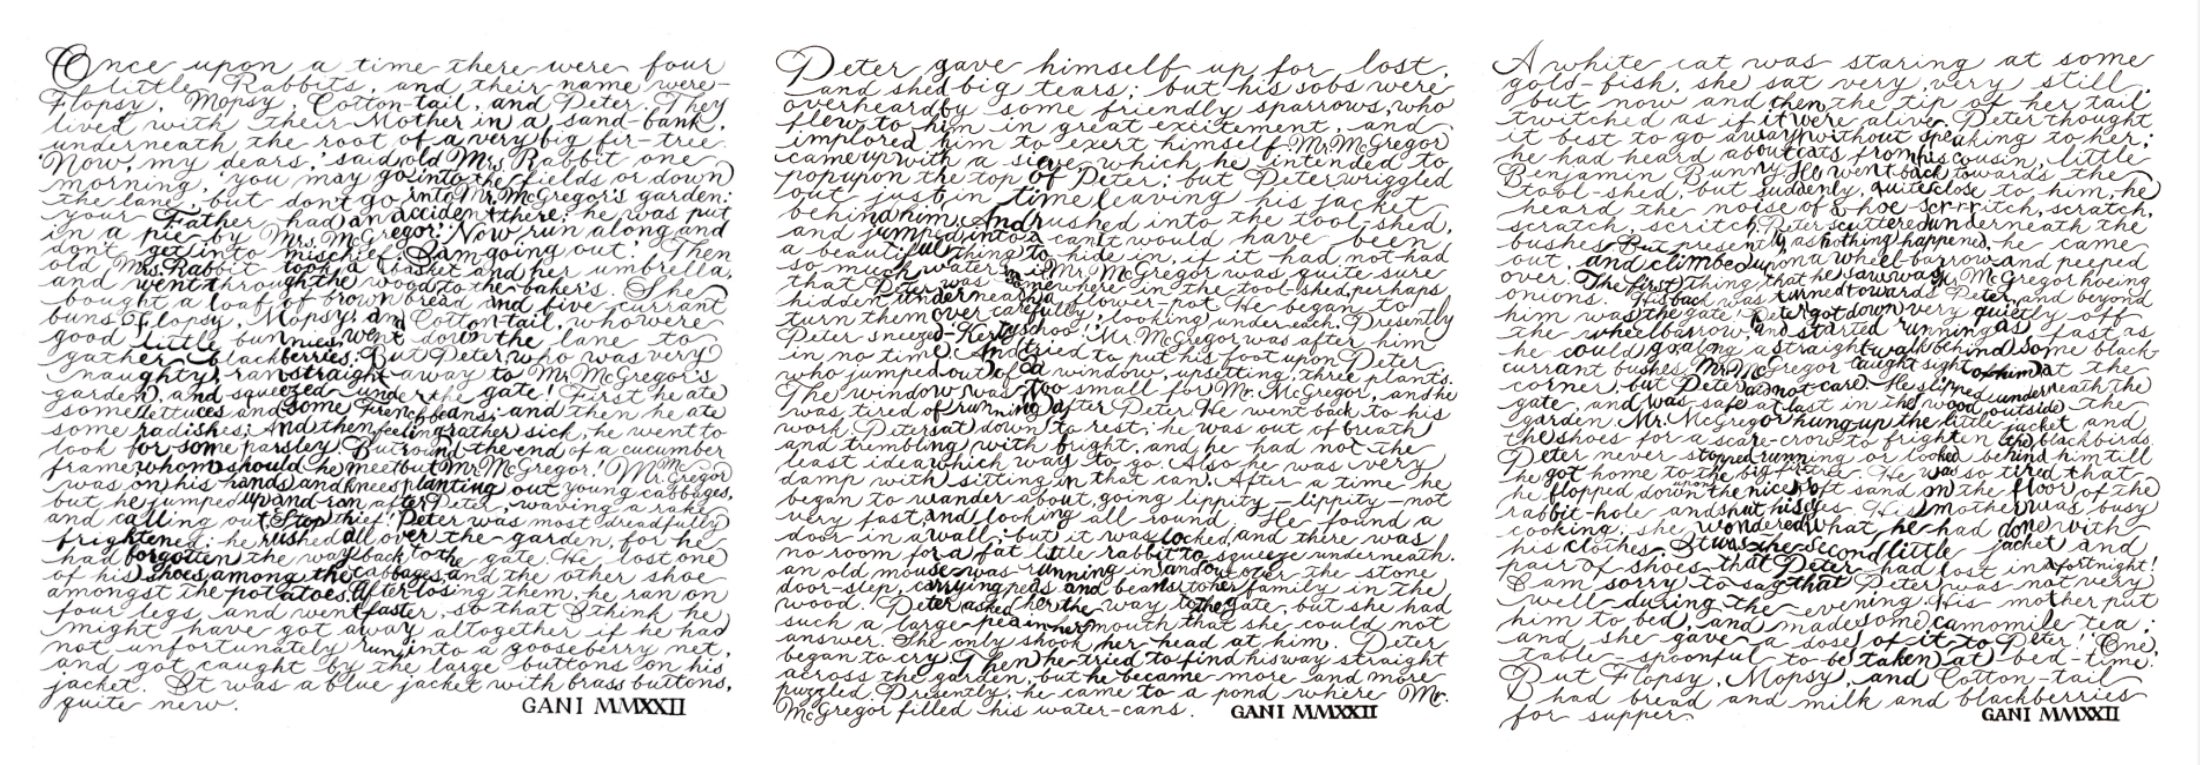 Once upon a time there were four
little Rabbits, and their name were-
Flopsy, Mopsy, Cotton-tail, and Peter. They
lived with their Mother in a sand-bank,
underneath the root of a very big fir-tree.
'Now, my dears,' said old Mrs. Rabbit one
morning, 'you may go into the fields or down
the lane, but don't go into Mr. McGregor's garden:
your Father had an accident there; he was put
in a pie by Mrs. McGregor.' 'Now run along and
don't get into mischief. I am going out.' Then
old Mrs. Rabbit took a basket and her umbrella,
and went through the wood to the baker's. She
bought a loaf of brown bread and five currant
buns. Flopsy, Mopsy, and Cotton-tail, who were
good little bunnies, went down the lane to
gather blackberries; But Peter, who was very
naughty, ran straight away to Mr. McGregor's
garden, and squeezed under the gate! First he ate
some lettuces and some French beans; and then he ate
some radishes; And then, feeling rather sick, he went to
look for some parsley. But round the end of a cucumber
frame, whom should he meet but Mr. McGregor! Mr. McGregor
was on his hands and knees planting out young cabbages,
but he jumped up and ran after Peter, waving a rake
and calling out, 'Stop thief!' Peter was most dreadfully
frightened; he rushed all over the garden, for he
had forgotten the way back to the gate. He lost one
of his shoes among the cabbages, and the other shoe
amongst the potatoes. After losing them, he ran on
four legs, and went faster, so that I think he
might have got away altogether if he had
not unfortunately run into a gooseberry net,
and got caught by the large buttons on his
jacket. It was a blue jacket with brass buttons,
quite new.
GANI MMXXII
Peter gave himself up for lost,
and shed big tears; but his sobs were
overheard by some friendly sparrows, who
flew to him in great excitement, and
implored him to exert himself. Mr. McGregor
came up with a sieve, which he intended to
pop upon the top of Peter; but Peter wriggled
out just in time, leaving his jacket
behind him. And rushed into the tool-shed,
and jumped into a can. It would have been
a beautiful thing to hide in, if it had not had
so much water in it. Mr. McGregor was quite sure
that Peter was somewhere in the tool-shed, perhaps
hidden underneath a flower-pot. He began to
turn them over carefully, looking under each. Presently
Peter sneezed- 'Kertyschoo!' Mr. McGregor was after him
in no time. And tried to put his foot upon Peter,
who jumped out of a window, upsetting three plants.
The window was too small for Mr. McGregor, and he
was tired of running after Peter. He went back to his
work. Peter sat down to rest; he was out of breath
and trembling with fright, and he had not the
least idea which way to go. Also he was very
damp with sitting in that can. After a time he
began to wander about, going lippity-lippity-not
very fast, and looking all round. He found a
door in a wall; but it was locked, and there was
no room for a fat little rabbit to squeeze underneath.
an old mouse was running in and out over the stone
door-step, carrying peas and beans to her family in the
wood. Peter asked her the way to the gate, but she had
such a large pea in her mouth that she could not
answer. She only shook her head at him. Peter
began to cry. Then he tried to find his way straight
across the garden, but he became more and more
puzzled. Presently, he came to a pond where Mr.
McGregor filled his water-cans.
GANI MMXXII
A white cat was staring at some
gold-fish, she sat very, very still,
but now and then the tip of her tail
twitched as if it were alive. Peter thought
it best to go away without speaking to her;
he had heard about cats from his cousin, little
Benjamin Bunny. He went back towards the
tool-shed, but suddenly, quite close to him, he
heard the noise of a hoe scr-r-ritch, scratch,
scratch, scritch. Peter scuttered underneath the
bushes. But presently, as nothing happened, he came
out, and climbed upon a wheelbarrow and peeped
over. The first thing that he saw was Mr. McGregor hoeing
onions. His back was turned towards Peter, and beyond
him was the gate! Peter got down very quietly off
the wheelbarrow, and started running as fast as
he could go, along a straight walk behind some black-
currant bushes. Mr. McGregor caught sight of him at the
corner, but Peter did not care. He slipped underneath the
gate, and was safe at last in the wood outside the
garden. Mr. McGregor hung up the little jacket and
the shoes for a scare-crow to frighten the blackbirds.
Peter never stopped running or looked behind him till
he got home to the big fir-tree. He was so tired that
he flopped down upon the nice soft sand on the floor of the
rabbit-hole and shut his eyes. His mother was busy
cooking; she wondered what he had done with
his clothes. It was the second little jacket and
pair of shoes that Peter had lost in a fortnight!
I am sorry to say that Peter was not very
well during the evening. His mother put
him to bed, and made some camomile tea;
and she gave a dose of it to Peter! 'One
table-spoonful to be taken at bed-time.'
But Flopsy, Mopsy, and Cotton-tail
had bread and milk and blackberries
for supper
GANI MMXXII